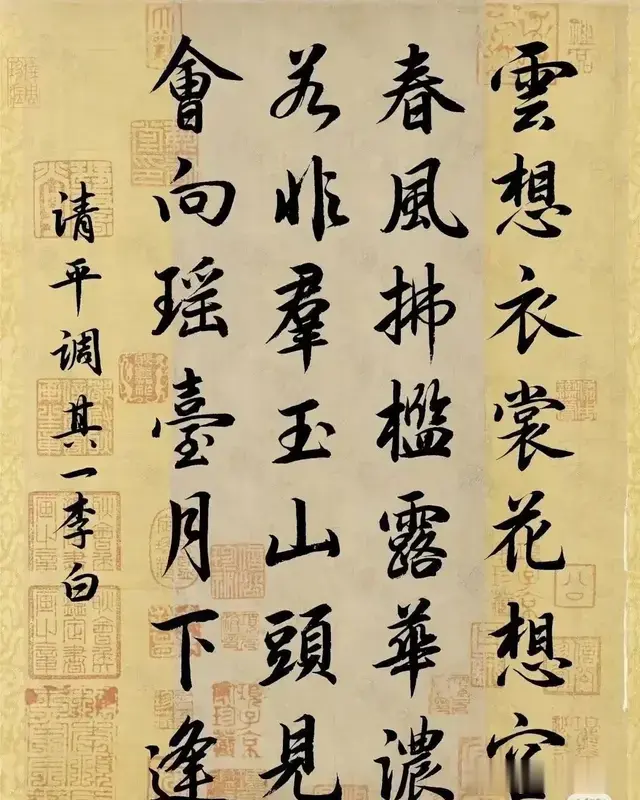 雲想衣裳花想容
春風拂檻露華濃
若非羣玉山頭見
會向瑶臺月下逢
清平调其一李白